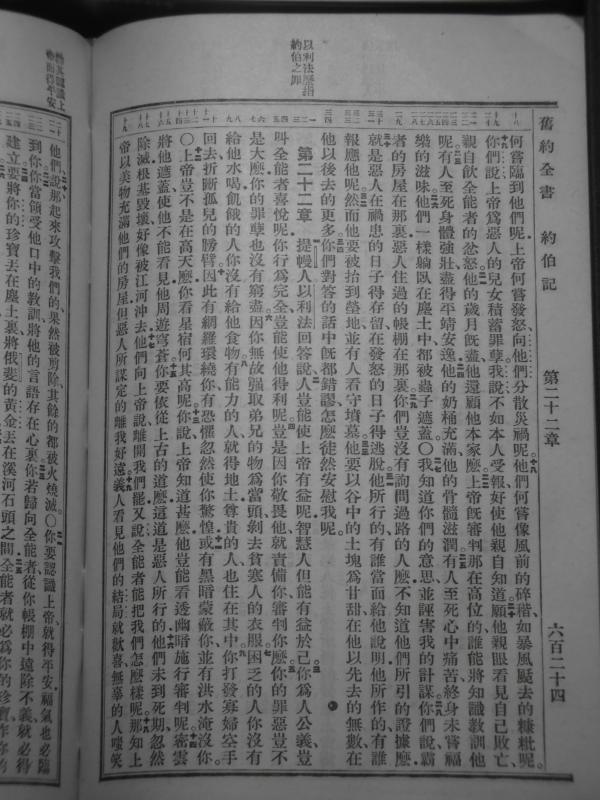 舊約全書 約伯記 第二十二章 六百二十四
以利法歷指
約伯之罪
何嘗臨到他們呢上帝何嘗發怒向他們分散災禍呢他們何嘗像風前的碎稭如暴風颳去的糠粃呢
你們說上帝爲惡人的兒女積蓄罪孽我說不如本人受報好使他親自知道願他親眼看見自己敗亡
親自飲全能者的忿怒他的歲月旣盡他還顧他本家麼上帝旣審判那在高位的誰能將知識教訓他
呢有人至死身體強壯盡得平靖安逸他的奶桶充滿他的骨髓滋潤有人至死心中痛苦終身未嘗福
樂的滋味他們一樣躺臥在塵土中都被蟲子遮蓋〇我知道你們的意思並誣害我的計謀你們說霸
者的房屋在那裏惡人住過的帳棚在那裏你們豈沒有詢問過路的人麼不知道他們所引的證據麼
就是惡人在禍患的日子得存留在發怒的日子得逃脫他所行的有誰當面給他說明他所作的有誰
報應他呢然而他要被抬到塋地並有人看守墳墓他要以谷中的土塊爲甘甜在他以先去的無數在
他以後去的更多你們對答的話中旣都錯謬怎麼徒然安慰我呢
第二十二章 提幔人以利法回答說人豈能使上帝有益呢智慧人但能有益於己你爲人公義豈
叫全能者喜悅呢你行爲完全豈能使他得利呢豈是因你敬畏他就責備你審判你麼你的罪惡豈不
是大麼你的罪孽也沒有窮盡因你無故强取弟兄的物爲當頭剝去貧寒人的衣服困乏的人你沒有
給他水喝飢餓的人你沒有給他食物有能力的人就得地土尊貴的人也住在其中你打發寡婦空手
回去折斷孤兒的膀臂因此有網羅環繞你有恐懼忽然使你驚惶或有黑暗蒙蔽你並有洪水淹沒你
〇上帝豈不是在高天麼你看星宿何其高呢你說上帝知道甚麼他豈能看透幽暗施行審判呢密雲
將他遮蓋使他不能看見他周遊穹蒼你要依從上古的道麼這道是惡人所行的他們未到死期忽然
除滅根基毀壞好像被江河沖去他們向上帝說離開我們罷又說全能者能把我們怎麼樣呢那知上
帝以美物充滿他們的房屋但惡人所謀定的離我好遠義人看見他們的結局就歡喜無辜的人嗤笑
他們說那起來攻擊我們的果然被剪除其餘的都被火燒滅〇你要認識上帝就得平安福氣也必臨
到你你當領受他口中的教訓將他的言語存在心裏你若歸向全能者從你帳棚中遠除不義就必得
建立要將你的珍寶丟在塵土裏將俄斐的黃金丟在溪河石頭之間全能者就必爲你的珍寶作你的